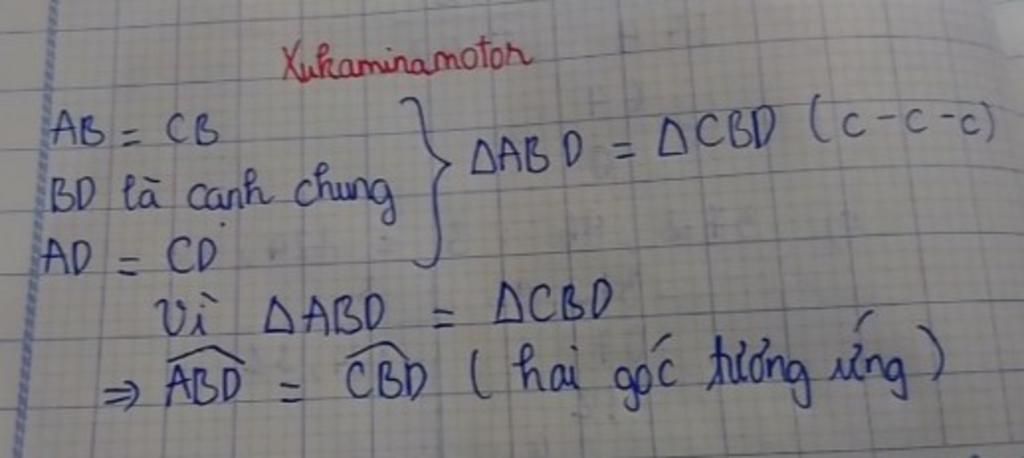 Xukaminamoton
AB = CB
BD là cạnh chung
AD = CD
} ΔABD = ΔCBD (c-c-c)
Vì ΔABD = ΔCBD
⇒ \widehat{ABD} = \widehat{CBD} (hai góc tương ứng)